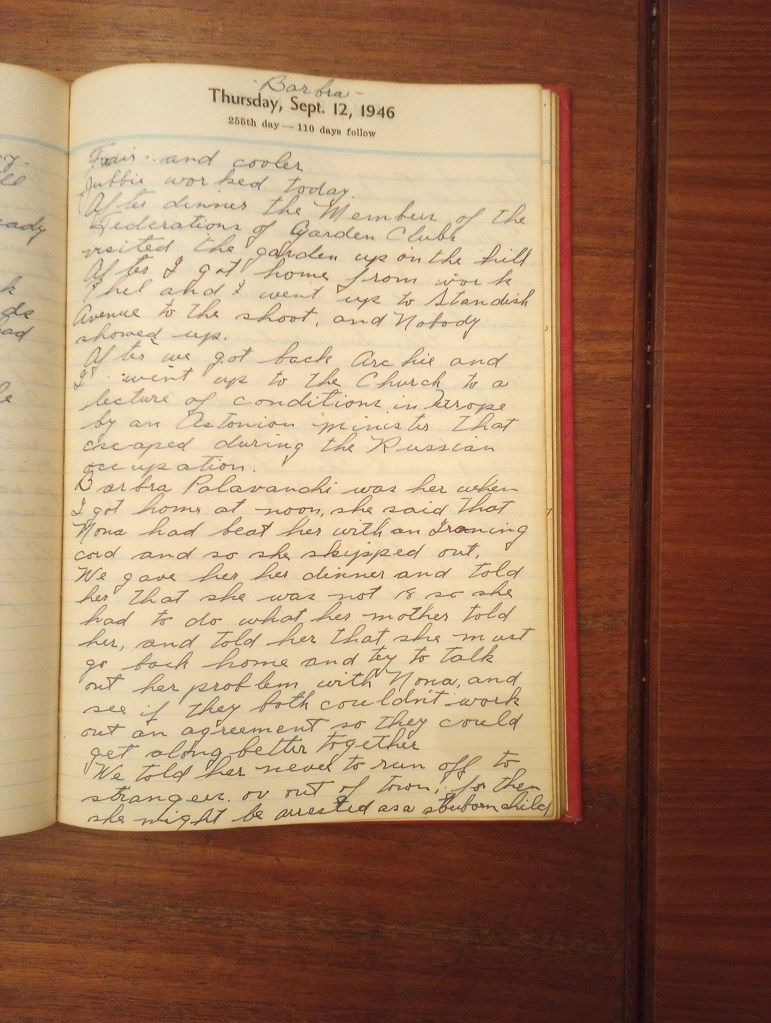 - Barbra -
Thursday, Sept. 12, 1946
255th day — 110 days follow
y.
ll
Fair. and cooler
Jubbie worked today.
eady
After dinner the Members of the
Federations of Garden Clubs
visited the garden up on the hill
k
After I got home from work
ds
Ethel and I went up to Standish
ad
Avenue to the shoot, and Nobody
showed up.
After we got back Archie and
le
I went up to the Church to a
lecture of conditions in Europe
by an Astonion minister that
escaped during the Russian
occupation.
Barbra Palavanchi was her when
I got home at noon, she said that
Nona had beat her with an Ironing
cord and so she skipped out.
We gave her her dinner and told
her that she was not 18 so she
had to do what her mother told
her, and told her that she must
go back home and try to talk
out her problem with Nona, and
see if they both couldn't work
out an agreement so they could
get along better together
We told her never to run off to
strangers. or out of town; for then
she might be arrested as a stuborn child